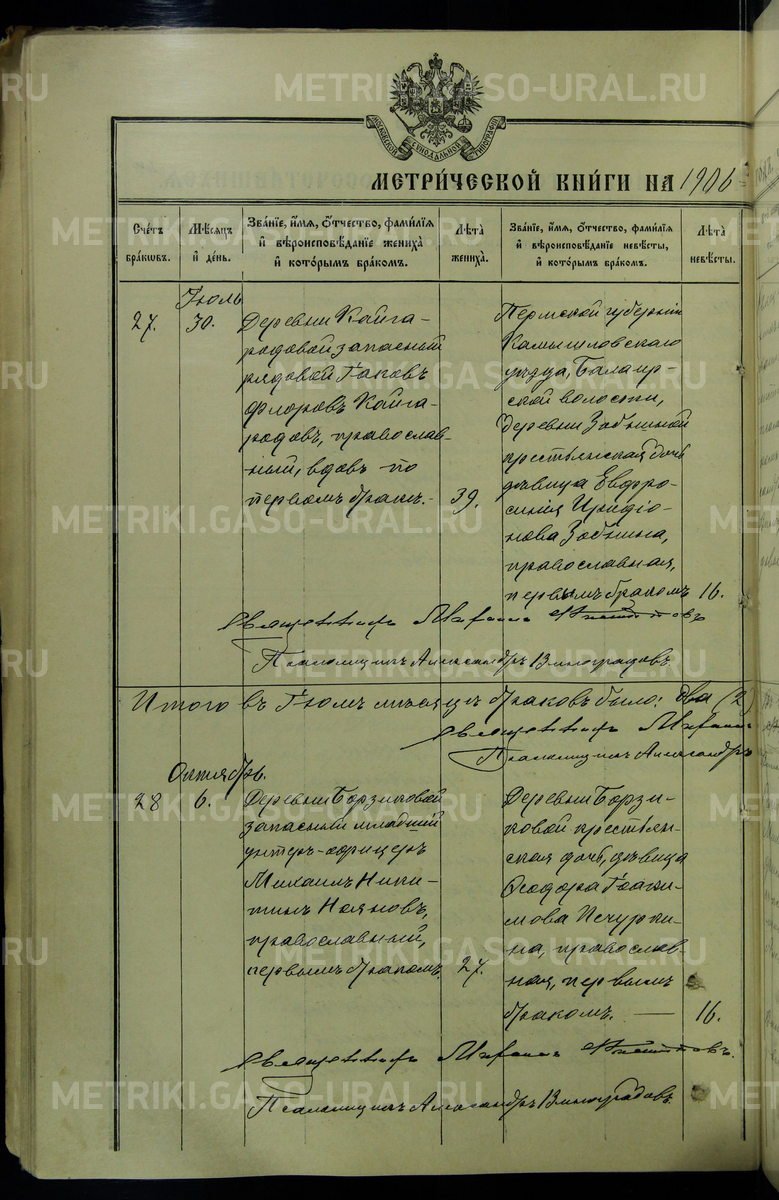 МОСКОВСКОЙ СѴНОДАЛЬНОЙ ТИПОГРАФІИ
МЕТРИ́ЧЕСКОЙ КНИ́ГИ НА 1906
Сче́тъ бра́кѡвъ.
Мѣ́сѧцъ и҆ де́нь.
Зва́нїе, и҆́мѧ, ѻ҆́тчество, фами́лїѧ
и҆ вѣроисповѣ́данїе жениха̀
и҆ кото́рымъ бра́комъ.
Лѣ́та жениха̀.
Зва́нїе, и҆́мѧ, ѻ҆́тчество, фами́лїѧ
и҆ вѣроисповѣ́данїе невѣ́сты,
и҆ кото́рымъ бра́комъ.
Лѣ́та невѣ́сты.
27.
Іюль
30.
Деревни Кайга-
родовой запасный
рядовой Іаковъ
Флоровъ Кайга-
родовъ, православ-
ный, вдовъ по
первомъ бракѣ.-
39.
Пермской губерніи
Камышловскаго
уѣзда, Балаир-
ской волости,
деревни Зобниной
крестьянская дочь
дѣвица Евфро-
синія Иридіо-
нова Зобнина,
православная,
первымъ бракомъ
16.
Священникъ
Псаломщикъ Александръ Виноградовъ.
Итого въ Іюлѣ мѣсяцѣ браковъ было: два (2)
Священникъ
Псаломщикъ Александръ
28
Октябрь.
6.
Деревни Борзиковой
запасный младшій
унтеръ-офицеръ
Михаилъ Ники-
тинъ Нояновъ,
православный,
первымъ бракомъ.
27.
Деревни Борзи-
ковой крестьян-
ская дочь, дѣвица
Ѳеодора Іоаки-
мова Печурки-
на, православ-
ная, первымъ
бракомъ. —
16.
Священникъ
Псаломщикъ Александръ Виноградовъ.
METRIKI.GASO-URAL.RU